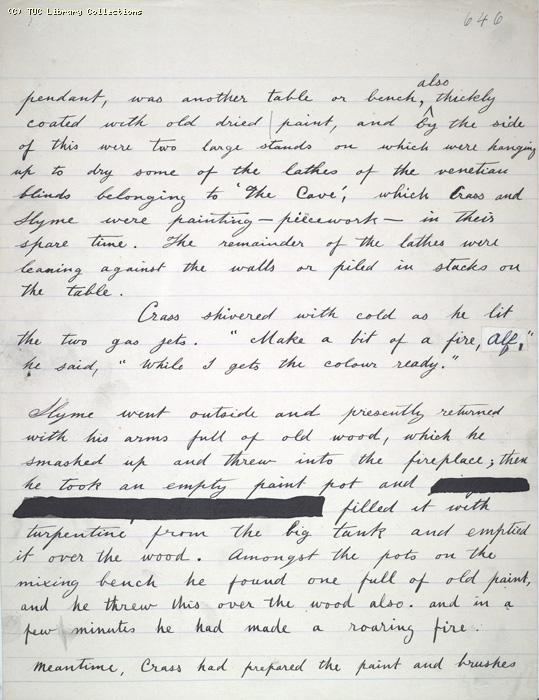 (C) TUC Library Collections
646
also
pendant, was another table or bench, thickly
coated with old dried paint, and by the side
of this were two large stands on which were hanging
up to dry some of the lathes of the venetian
blinds belonging to 'The Cave', which Crass and
Slyme were painting - piecework - in their
spare time. The remainder of the lathes were
leaning against the walls or piled in stacks on
the table.
Crass shivered with cold as he lit
the two gas jets. "Make a bit of a fire, Alf,"
he said, "while I gets the colour ready."
Slyme went outside and presently returned
with his arms full of old wood, which he
smashed up and threw into the fireplace; then
he took an empty paint pot and
filled it with
turpentine from the big tank and emptied
it over the wood. Amongst the pots on the
mixing bench he found one full of old paint,
and he threw this over the wood also. and in a
few minutes he had made a roaring fire.
Meantime, Crass had prepared the paint and brushes